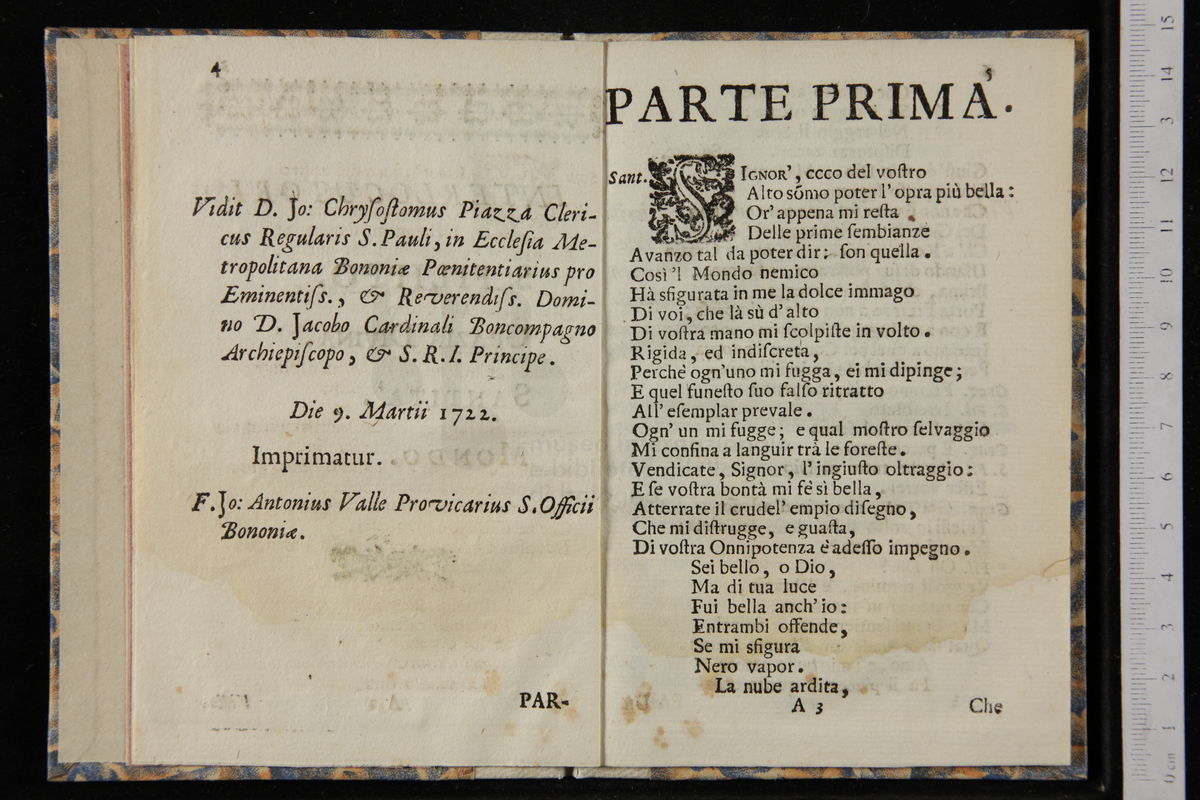 4
Vidit D. Jo: Chryſoſtomus Piazza Cleri-
cus Regularis S. Pauli, in Eccleſia Me-
tropolitana Bononiæ Pœnitentiarius pro
Eminentiſs., & Reverendiſs. Domi-
no D. Jacobo Cardinali Boncompagno
Archiepiſcopo, & S. R. I. Principe.
Die 9. Martii 1722.
Imprimatur.
F. Jo: Antonius Valle Provicarius S. Officii
Bononiæ.
PAR-
5
PARTE PRIMA.
Sant. SIGNOR', ecco del voſtro
Alto sõmo poter l'opra più bella:
Or' appena mi reſta
Delle prime ſembianze
Avanzo tal da poter dir: ſon quella.
Così 'l Mondo nemico
Hà sfigurata in me la dolce immago
Di voi, che là sù d'alto
Di voſtra mano mi ſcolpiſte in volto.
Rigida, ed indiſcreta,
Perchè ogn'uno mi fugga, ei mi dipinge;
E quel funeſto ſuo falſo ritratto
All' eſemplar prevale.
Ogn' un mi fugge; e qual moſtro ſelvaggio
Mi confina a languir trà le foreſte.
Vendicate, Signor, l'ingiuſto oltraggio:
E ſe voſtra bontà mi fè sì bella,
Atterrate il crudel' empio diſegno,
Che mi diſtrugge, e guaſta,
Di voſtra Onnipotenza è adeſſo impegno.
Sei bello, o Dio,
Ma di tua luce
Fui bella anch' io:
Entrambi offende,
Se mi sfigura
Nero vapor.
La nube ardita,
A 3
Che
15
14
3
12
11
10
9
8
7
6
5
4
3
2
1
0 cm